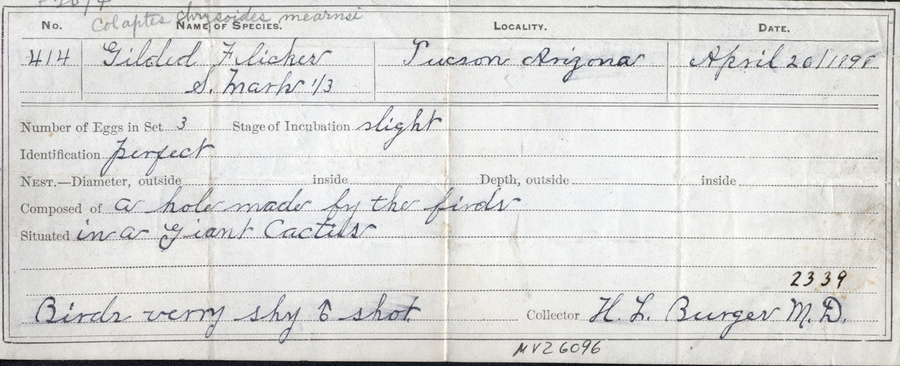 Colaptes chrysoides mearnsi
No. Name of Species. Locality. Date.
414 Gilded Flicker Tucson Arizona April 20/1898
S. Mark 1/3
Number of Eggs in Set 3 Stage of Incubation slight
Identification perfect
Nest.—Diameter, outside inside Depth, outside inside
Composed of a hole made by the birds
Situated in a Giant Cactus
2339
Birds verry shy shot Collector H. L. Burger M.D.
MVZ6096